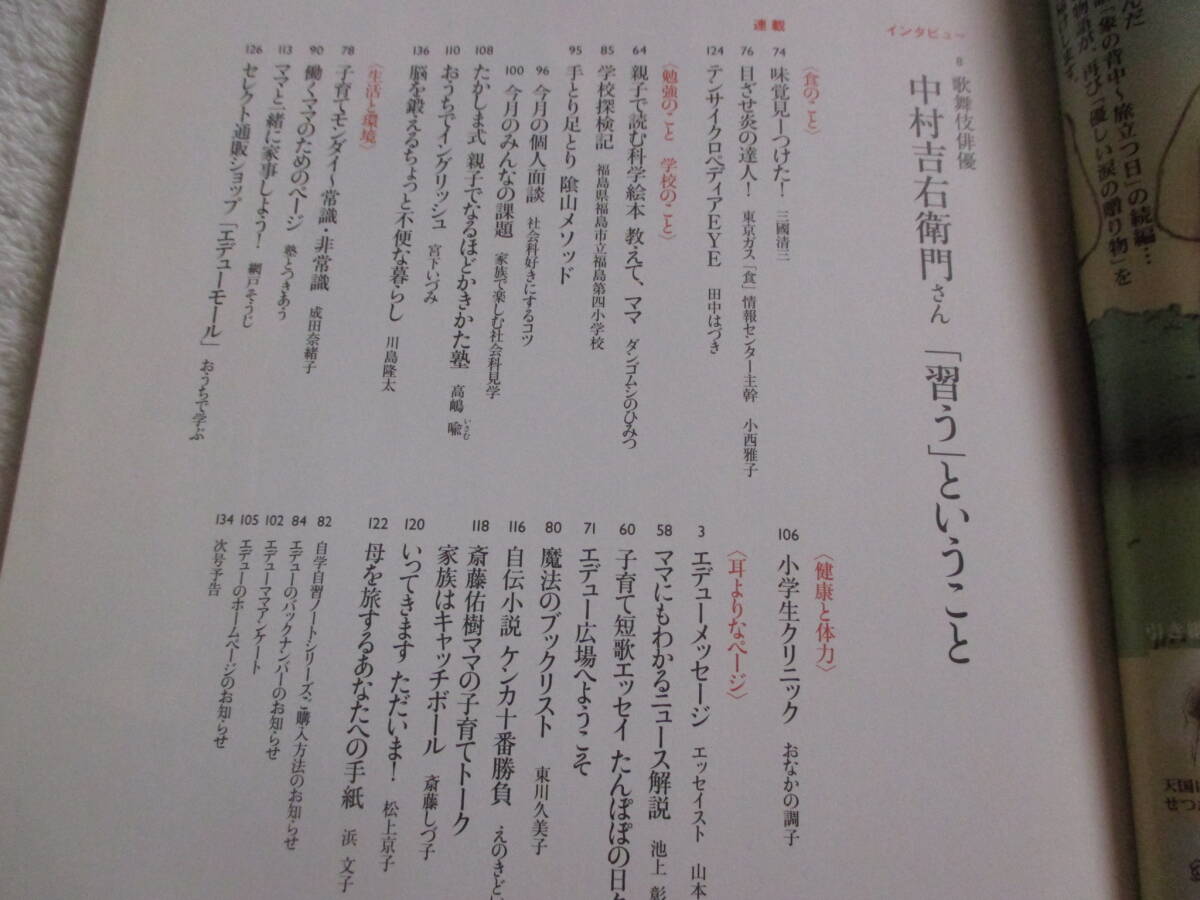 んだ
話「象の背中~旅立つ日」の続編…
物語が、再び「優しい涙の贈り物」を
届けします。
インタビュー
8 歌舞伎俳優
中村吉右衛門さん 「習う」ということ
連載
〈食のこと〉
74 味覚見ーつけた! 三國清三
76 目ざせ炎の達人! 東京ガス「食」情報センター主幹 小西雅子
124 テンサイクロペディアEYE 田中はづき
〈勉強のこと 学校のこと〉
64 親子で読む科学絵本 教えて、ママ ダンゴムシのひみつ
85 学校探検記 福島県福島市立福島第四小学校
95 手とり足とり 陰山メソッド
96 今月の個人面談 社会科好きにするコツ
100 今月のみんなの課題 家族で楽しむ社会科見学
108 たかしま式 親子でなるほどかきかた塾 高嶋 喩 いさむ
110 おうちでイングリッシュ 宮下いづみ
136 脳を鍛えるちょっと不便な暮らし 川島隆太
〈生活と環境〉
78 子育てモンダイ~常識・非常識 成田奈緒子
90 働くママのためのページ 塾とつきあう
113 ママと一緒に家事しよう! 網戸そうじ
126 セレクト通販ショップ「エデューモール」 おうちで学ぶ
〈健康と体力〉
106 小学生クリニック おなかの調子
〈耳よりなページ〉
3 エデューメッセージ エッセイスト 山本
58 ママにもわかるニュース解説 池上 彰
60 子育て短歌エッセイ たんぽぽの日々
71 エデュー広場へようこそ
80 魔法のブックリスト 東川久美子
116 自伝小説 ケンカ十番勝負 えのきど
118 斎藤佑樹ママの子育てトーク
家族はキャッチボール 斎藤しづ子
120 いってきます ただいま! 松上京子
122 母を旅するあなたへの手紙 浜 文子
82 自学自習ノートシリーズご購入方法のお知らせ
84 エデューのバックナンバーのお知らせ
102 エデューママアンケート
105 エデューのホームページのお知らせ
134 次号予告
天国に
せつ